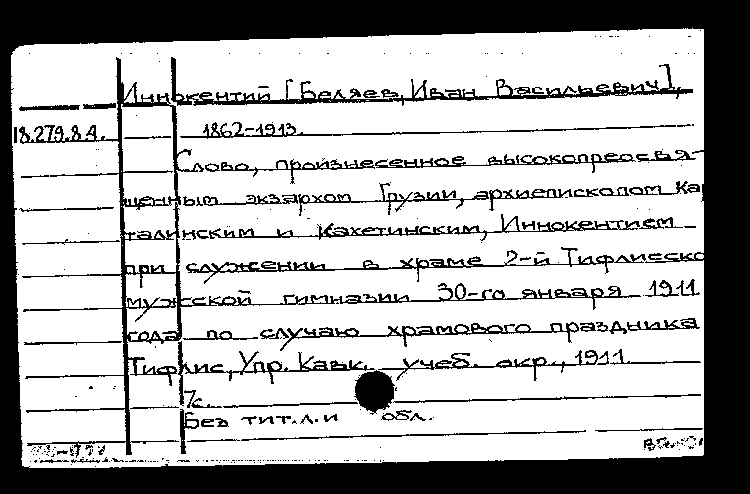 Иннокентий [Беляев, Иван Васильевич],
18.279.8.4. 1862-1913.
Слово, произнесенное высокопреосвя-
щенным экзархом Грузии, архиепископом Кар
талинским и Кахетинским, Иннокентием
при служении в храме 2-й Тифлисско
мужской гимназии 30-го января 1911
года по случаю храмового праздника
Тифлис, Упр. Кавк. учеб. окр., 1911.
7с.
Без тит.л. и обл.